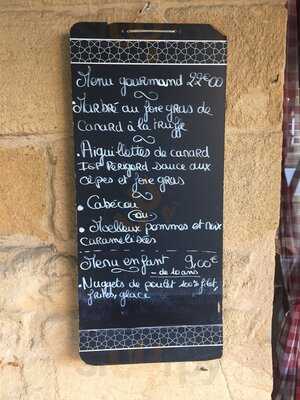 Menu gourmand 22€00
Marbré au foie gras de
Canard à la truffe
• Aiguillettes de canard
IGP Périgord sauce aux
cèpes et foie gras
• Cabécou
- ou -
• Moelleux pommes et noix
caramélisées
Menu enfant 9,00€
- de 10 ans
• Nuggets de poulet 100% filet,
frites, glace